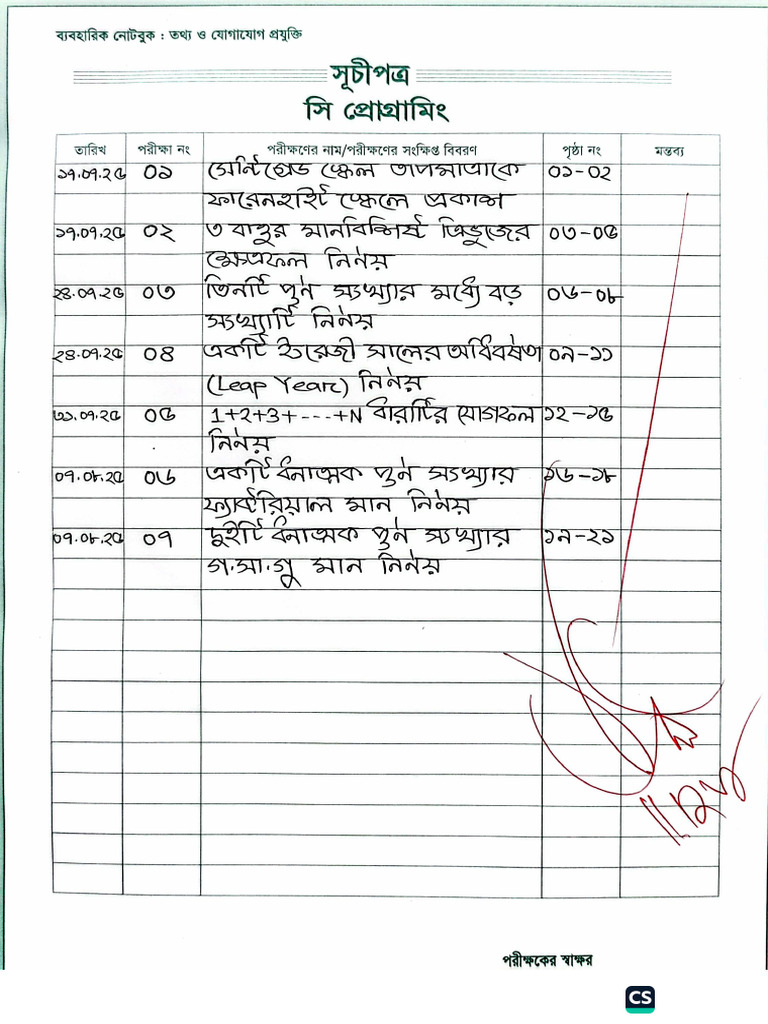 ব্যবহারিক নোটবুক : তথ্য ও যোগাযোগ প্রযুক্তি
সূচীপত্র
সি প্রোগ্রামিং
তারিখ পরীক্ষা নং পরীক্ষণের নাম/পরীক্ষণের সংক্ষিপ্ত বিবরণ পৃষ্ঠা নং মন্তব্য
১৭.০৭.২৫ ০১ সেন্টিগ্রেড স্কেল তাপমাত্রাকে ০১-০২
ফারেনহাইট স্কেলে প্রকাশ
১৭.০৭.২৫ ০২ ৩ বাহুর মানবিশিষ্ট ত্রিভুজের ০৩-০৫
ক্ষেত্রফল নির্ণয়
২৪.০৭.২৫ ০৩ তিনটি পূর্ণ সংখ্যার মধ্যে বড় ০৬-০৮
সংখ্যাটি নির্ণয়
২৪.০৭.২৫ ০৪ একটি ইংরেজী সালের অধিবর্ষতা ০৯-১১
(Leap Year) নির্ণয়
৩১.০৭.২৫ ০৫ 1+2+3+----+N ধারাটির যোগফল ১২-১৫
নির্ণয়
০৭.০৮.২৫ ০৬ একটি ধনাত্মক পূর্ণ সংখ্যার ১৬-১৮
ফ্যাক্টরিয়াল মান নির্ণয়
০৭.০৮.২৫ ০৭ দুইটি ধনাত্মক পূর্ণ সংখ্যার ১৯-২১
গ.সা.গু মান নির্ণয়
পরীক্ষকের স্বাক্ষর
CS